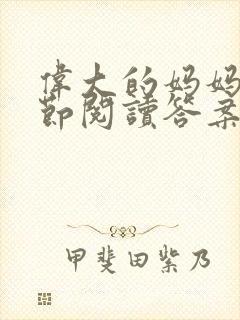 偉大的妈妈
節閱讀答案
甲斐田紫乃